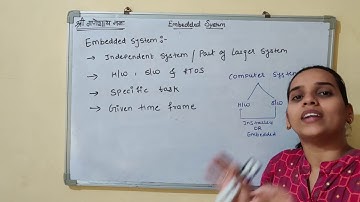 श्री गणेशाय नमः
Embedded System
Embedded System:-
→ Independent System / Part of Larger System
→ H/W, S/W & RTOS
→ Specific task
→ Given time frame
Computer System
H/W S/W
Installed
OR
Embedded